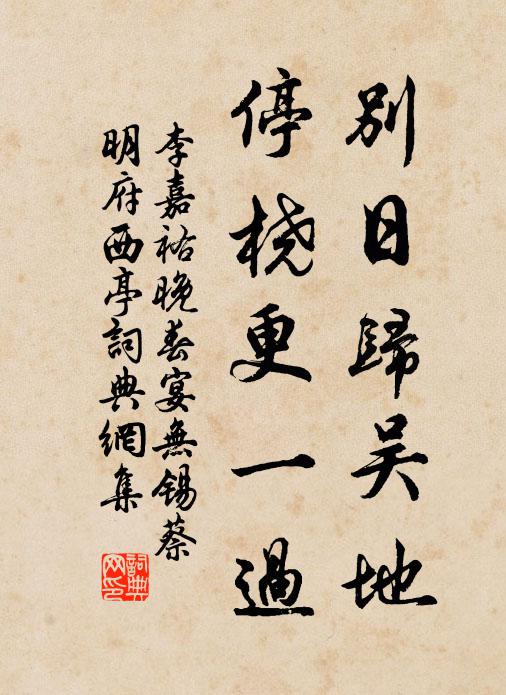 别日歸吴地
停桡更一過
李嘉祐晚春宴無锡蔡
明府西亭詞典網集
詞典
网印